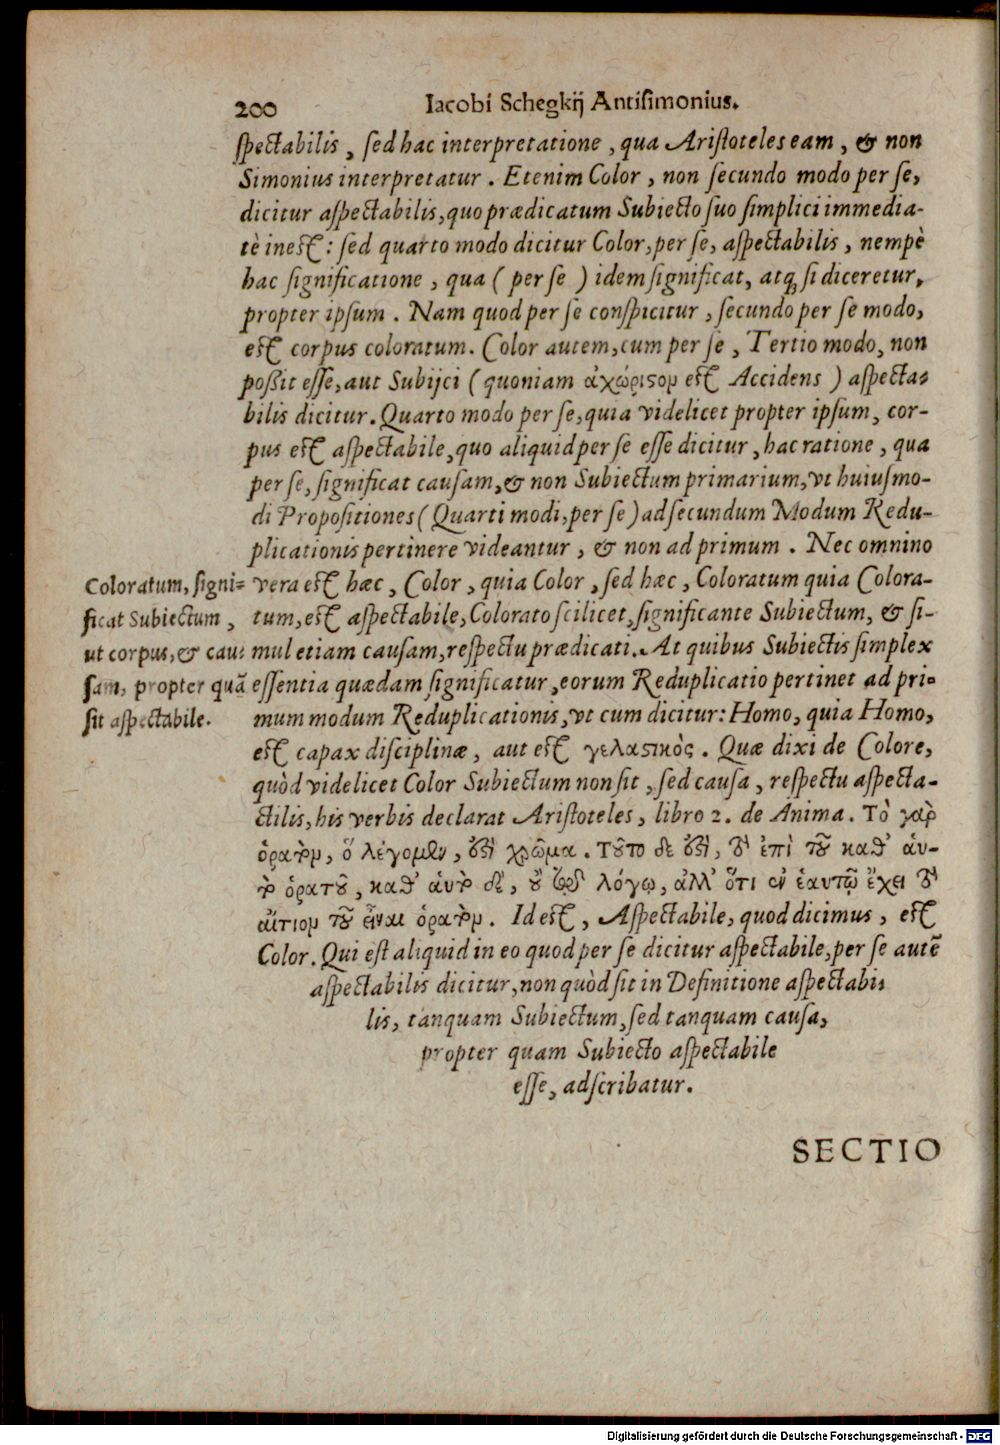 200 Iacobi Schegkij Antisimonius.
spectabilis, sed hac interpretatione, qua Aristoteles eam, & non
Simonius interpretatur. Etenim Color, non secundo modo per se,
dicitur aspectabilis, quo prædicatum Subiecto suo simplici immedia-
tè inest: sed quarto modo dicitur Color, per se, aspectabilis, nempè
hac significatione, qua (per se) idem significat, atq; si diceretur,
propter ipsum. Nam quod per se conspicitur, secundo per se modo,
est corpus coloratum. Color autem, cum per se, Tertio modo, non
poßit esse, aut Subijci (quoniam ἀχώριστον est Accidens) aspecta-
bilis dicitur. Quarto modo per se, quia videlicet propter ipsum, cor-
pus est aspectabile, quo aliquid per se esse dicitur, hac ratione, qua
per se, significat causam, & non Subiectum primarium, vt huiusmo-
di Propositiones (Quarti modi, per se) ad secundum Modum Redu-
plicationis pertinere videantur, & non ad primum. Nec omnino
vera est hæc, Color, quia Color, sed hæc, Coloratum quia Colora-
tum, est aspectabile, Colorato scilicet, significante Subiectum, & si-
mul etiam causam, respectu prædicati. At quibus Subiectis simplex
essentia quædam significatur, eorum Reduplicatio pertinet ad pri-
mum modum Reduplicationis, vt cum dicitur: Homo, quia Homo,
est capax disciplinæ, aut est γελαστικὸς. Quæ dixi de Colore,
quòd videlicet Color Subiectum non sit, sed causa, respectu aspecta-
ctilis, his verbis declarat Aristoteles, libro 2. de Anima. Τὸ γὰρ
ὁρατὸν, ὅ λέγομεν, ἐστὶ χρῶμα. Τοῦτο δε ἐστὶ, τὸ ἐπὶ τοῦ καθ' ἁυ-
τὸ ὁρατοῦ, καθ' ἁυτὸ δὲ, οὐ τῷ λόγῳ, ἀλλ' ὅτι ἐν ἑαυτῷ ἔχει τὸ
ἄιτιον τοῦ εἶναι ὁρατὸν. Id est, Aspectabile, quod dicimus, est
Color. Qui est aliquid in eo quod per se dicitur aspectabile, per se autē
aspectabilis dicitur, non quòd sit in Definitione aspectabi-
lis, tanquam Subiectum, sed tanquam causa,
propter quam Subiecto aspectabile
esse, adscribatur.
Coloratum, signi-
ficat Subiectum,
ut corpus, & cau-
sam, propter quā
sit aspectabile.
SECTIO
Digitalisierung gefördert durch die Deutsche Forschungsgemeinschaft - DFG